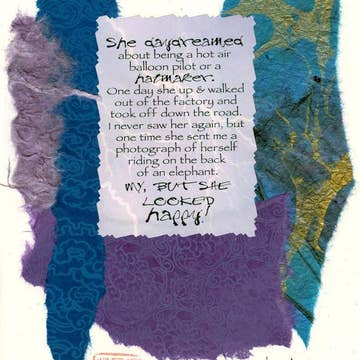 She daydreamed
about being a hot air
balloon pilot or a
hatmaker.
One day she up & walked
out of the factory and
took off down the road.
I never saw her again, but
one time she sent me a
photograph of herself
riding on the back
of an elephant.
MY, BUT SHE
LOOKED
happy!